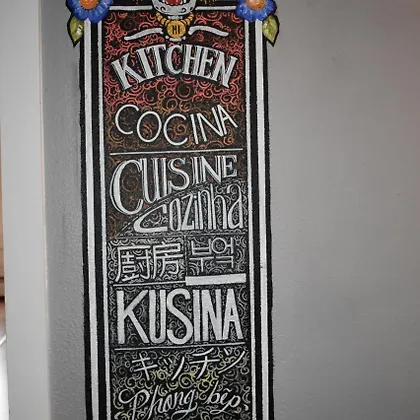 HI
KITCHEN
COCINA
CUISINE
Cozinha
廚房 부엌
KUSINA
キッチン
Phong bếp